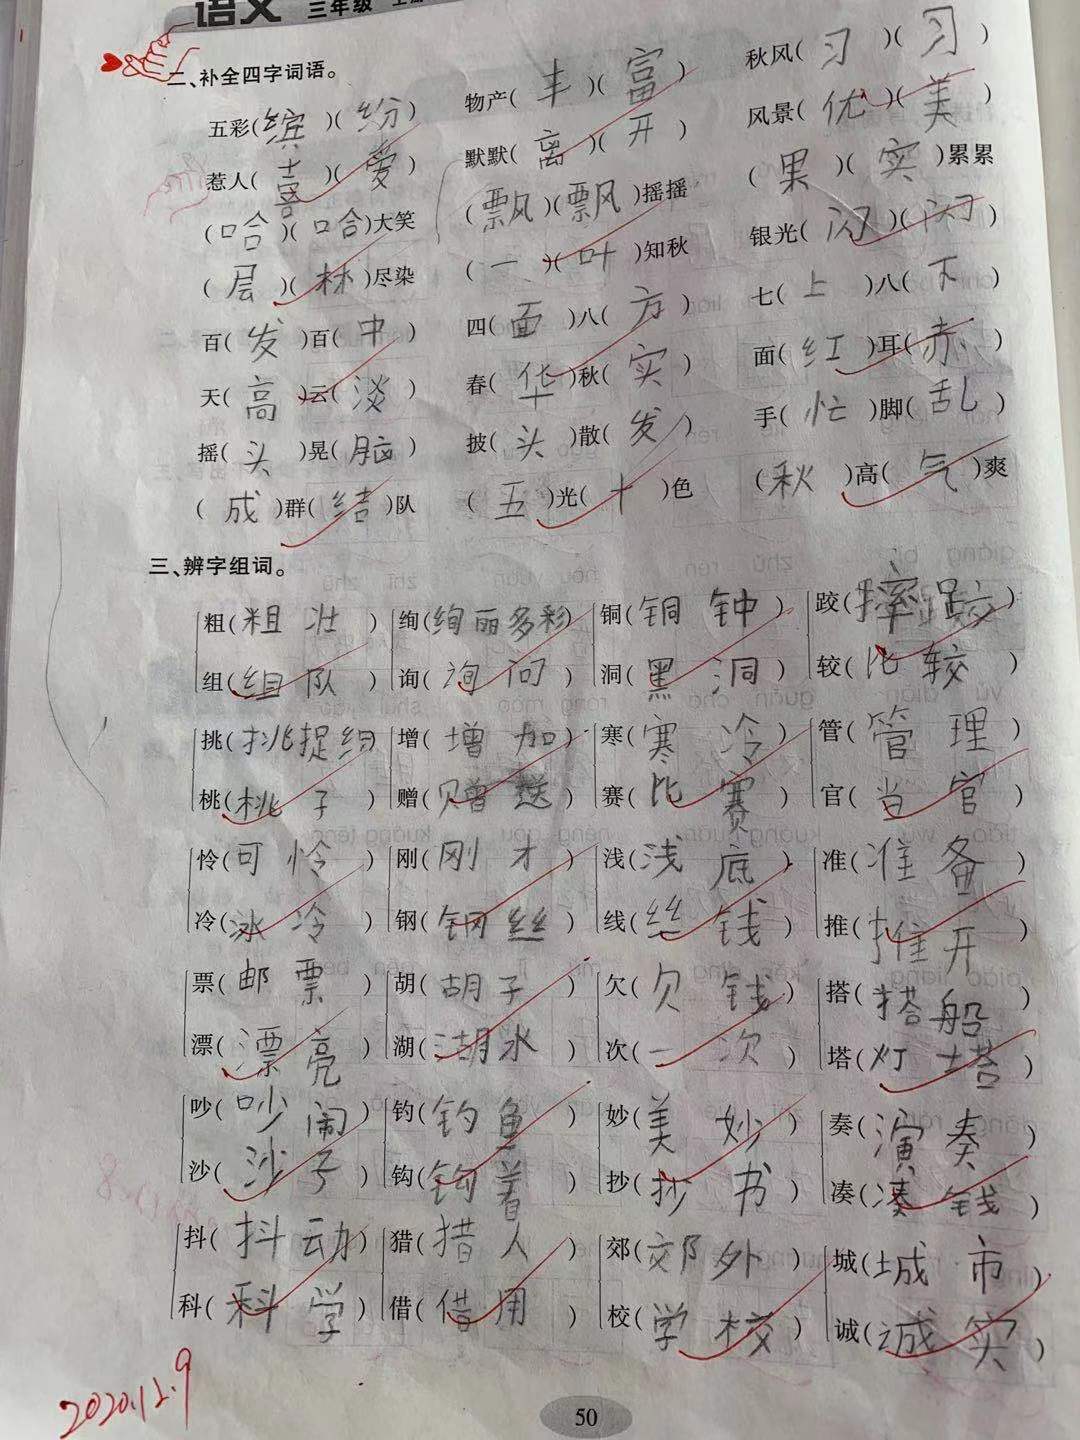 语文 三年级 上册
二、补全四字词语。
五彩(缤)(纷) 物产(丰)(富) 秋风(习)(习)
惹人(喜)(爱) 默默(离)(开) 风景(优)(美)
(哈)(哈)大笑 (飘)(飘)摇摇 (果)(实)累累
(层)(林)尽染 (一)(叶)知秋 银光(闪)(闪)
百(发)百(中) 四(面)八(方) 七(上)八(下)
天(高)云(淡) 春(华)秋(实) 面(红)耳(赤)
摇(头)晃(脑) 披(头)散(发) 手(忙)脚(乱)
(成)群(结)队 (五)光(十)色 (秋)高(气)爽
三、辨字组词。
粗(粗壮) 绚(绚丽多彩) 铜(铜钟) 跤(摔跤)
组(组队) 询(询问) 洞(黑洞) 较(比较)
挑(挑捉组) 增(增加) 寒(寒冷) 管(管理)
桃(桃子) 赠(赠送) 赛(比赛) 官(当官)
怜(可怜) 刚(刚才) 浅(浅底) 准(准备)
冷(冰冷) 钢(钢丝) 线(丝钱) 推(推开)
票(邮票) 胡(胡子) 欠(欠钱) 搭(搭船)
漂(漂亮) 湖(湖水) 次(一次) 塔(灯塔)
吵(吵闹) 钓(钓鱼) 妙(美妙) 奏(演奏)
沙(沙子) 钩(钩着) 抄(抄书) 凑(凑钱)
抖(抖动) 猎(猎人) 郊(郊外) 城(城市)
科(科学) 借(借用) 校(学校) 诚(诚实)
2020.12.9
50